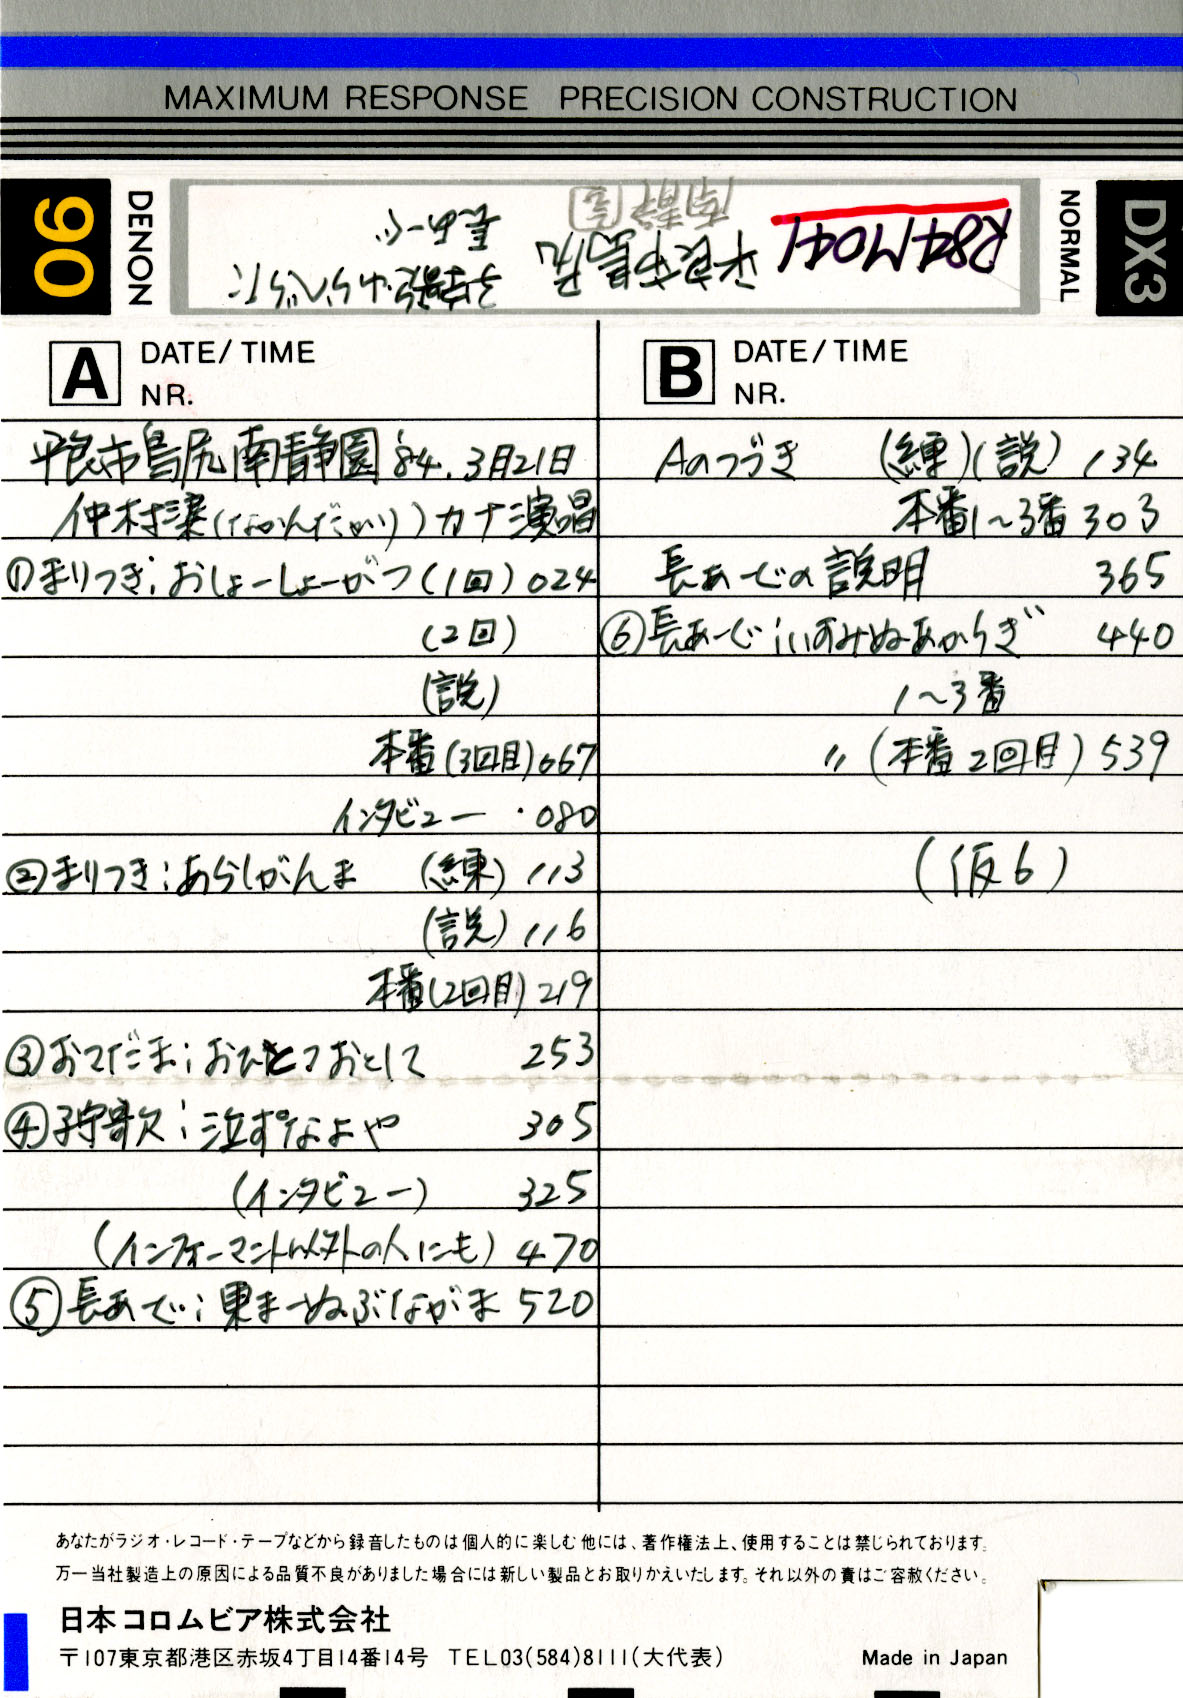 MAXIMUM RESPONSE PRECISION CONSTRUCTION
90
DENON
R84M041
平良市島尻
南静園
NORMAL
DX3
A DATE/TIME
NR.
平良市島尻南静園 '84.3月21日
仲村渠(なかんだかり)カナ演唱
①まりつき:おしょーしょーがつ(1回) 024
(2回)
(説)
本番(3回目) 067
インタビュー ・080
②まりつき:あらしがんま (練) 113
(説) 116
本番(2回目) 219
③おてだま:おひとつおとして 253
④子守歌:泣すなよや 305
(インタビュー) 325
(インフォーマント以外の人にも) 470
⑤長あぐ:東まーぬぶながま 520
B DATE/TIME
NR.
Aのつづき (練)(説) 134
本番1〜3番 303
長あーぐの説明 365
⑥長あーぐ:いすみぬあからぎ 440
1〜3番
〃(本番2回目) 539
(仮6)
あなたがラジオ・レコード・テープなどから録音したものは個人的に楽しむ他には、著作権法上、使用することは禁じられております。
万一当社製造上の原因による品質不良がありました場合には新しい製品とお取りかえいたします。それ以外の責はご容赦ください。
日本コロムビア株式会社
〒107東京都港区赤坂4丁目14番14号 TEL03(584)8111(大代表)
Made in Japan